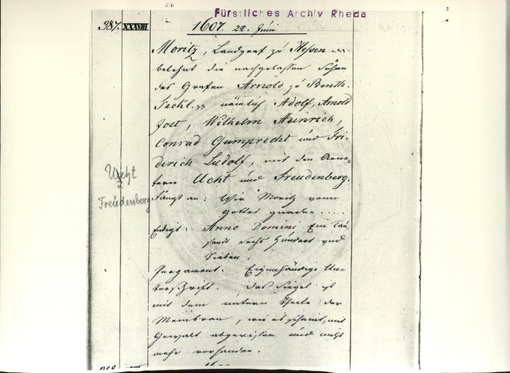 Fürstliches Archiv Rheda
387. XXXVIII 1607. 22. Juni
Moritz, Landgraf zu Hessen
belehnt die nachgelassen Söhne
des Grafen Arnold zu Benth.
Teckl. nämlich Adolf, Arnold
Jost, Wilhelm Heinrich,
Conrad Gumprecht und Fri-
derich Ludolf, mit den Aem-
tern Ucht und Freudenberg.
Ucht
u
Freudenberg
Fängt an: Wir Moritz vonn
Gottes gnaden .....
Endigt: Anno Domini Ein tau-
sendt sechs Hundert und
Sieben.
Pergament. Eigenhändige Un-
terschrift. Das Siegel ist
mit dem untern Theile der
Membran, wie es scheint, mit
Gewalt abgerissen und nicht
mehr vorhanden.